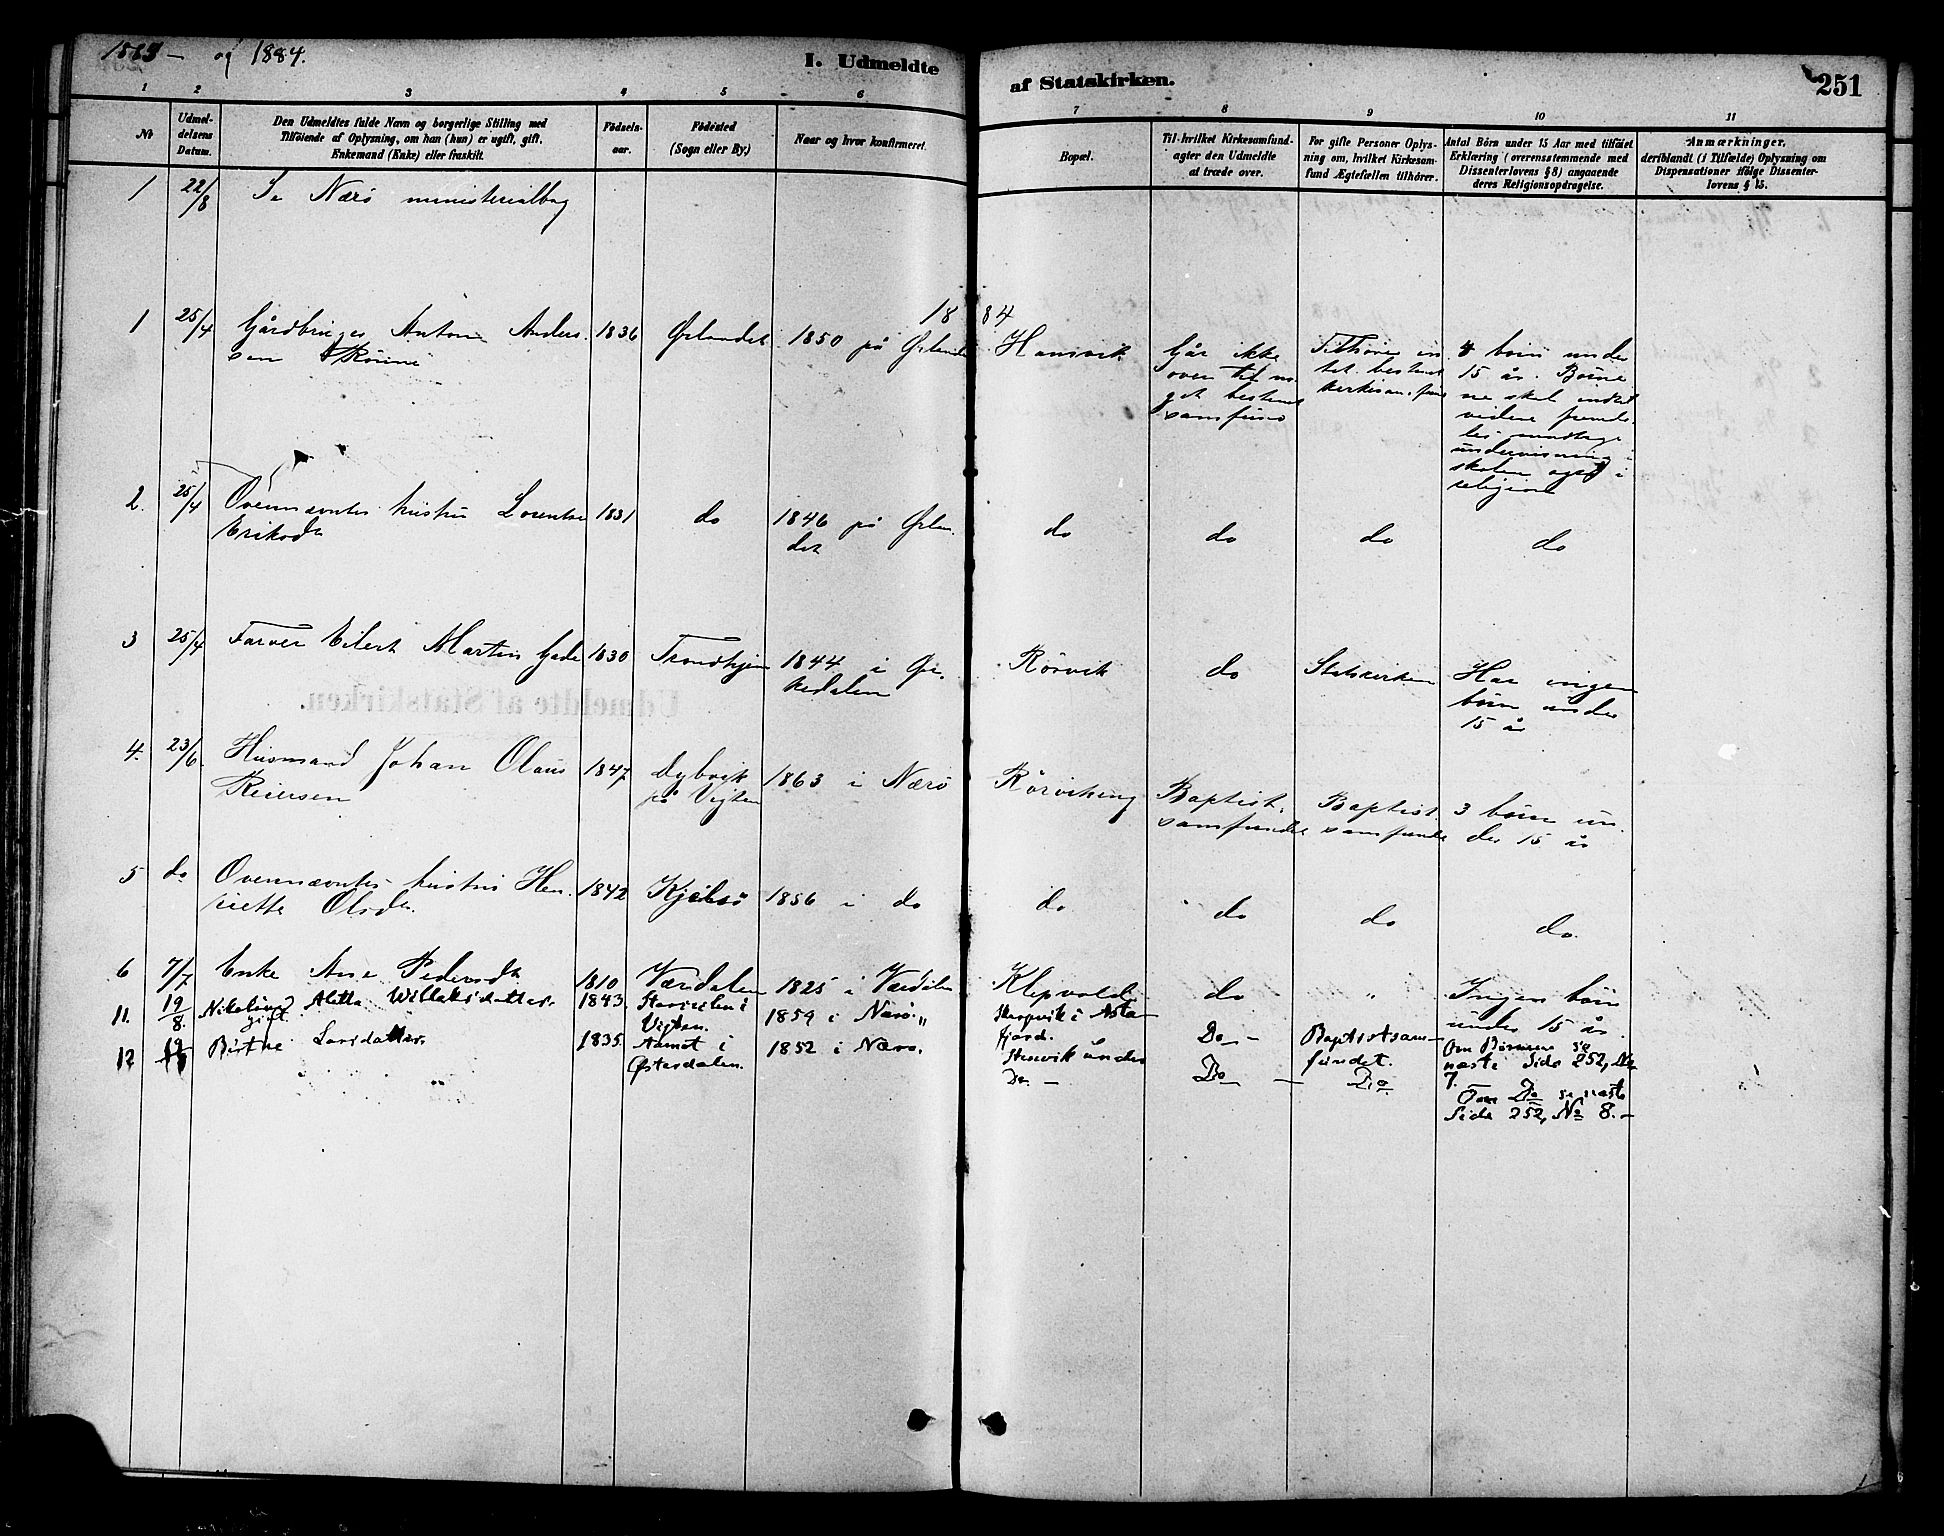 1883 — og 1884.
I. Udmeldte af Statskirken.
251
1 2 3 4 5 6 7 8 9 10 11
No
Udmel-
delsens
Datum.
Den Udmeldtes fulde Navn og borgerlige Stilling med
Tilföiende af Oplysning, om han (hun) er ugift, gift,
Enkemand (Enke) eller fraskilt.
Födsels-
aar.
Födested
(Sogn eller By.)
Naar og hvor konfirmeret.
Bopæl.
Til hvilket Kirkesamfund
agter den Udmeldte
at træde over.
For gifte Personer Oplys-
ning om, hvilket Kirkesam-
fund Ægtefællen tilhörer.
Antal Börn under 15 Aar med tilföiet
Erklæring (overensstemmende med
Dissenterlovens § 8) angaaende
deres Religionsopdragelse.
Anmærkninger,
deriblandt (i Tilfælde) Oplysning om
Dispensationer ifölge Dissenter-
lovens § 15.
1 22/8 Se Nærö ministerialbog
1884
1 25/4 Gårdbruger Anton Anders-
sen
1836
Ørlandet
1850 på Ørlandet
Går ikke
over til no-
get bestemt
samfund
Tilhører in-
tet bestemt
kirkesamfund
4 børn under
15 år. Børne-
ne skal indtil
videre fremde-
les modtage
undervisning i
skolen også i
religion
2. 25/4 Ovennævntes hustru Lorentse
Eriksdr
1831
do
1846 på Ørlan-
det
do
do
do
do
3 25/4 Farver Eilert Martin Gade
1830
Trondhjem
1844 i Or-
kedalen
Rörvik
do
Statskirken
Har ingen
börn under
15 år
4. 23/6. Husmand Johan Olaus
Reiersen
1847
Dybvik
på Vigten
1863 i Nærö
Rörvikeng
Baptist-
samfundet
Baptist
samfundet
3 börn un-
der 15 år
5 do Ovennævntes hustru Hen-
riette Olsdr.
1842
Kjelsö
1856 i do
do
do
do
do.
6 7/7 Enke Ane Pedersdt
1810
Værdalen
1825 i Værdalen
do
"
Ingen börn
under 15 år.
11. 19/8. Aletta Willatsdatter.
gift.
1843.
Vigten.
1859 i Nærö.
fjord.
Do —
Baptistsam-
fundet.
Om Börnene se
næste Side 252, No
7.
12 Larsdatter.
1835.
Aamot i
Østerdalen.
1852 i Nærö.
under
Do —
Do —
Do
Om Do se næste
Side 252, No 8.—
Udmeldte af Statskirken.